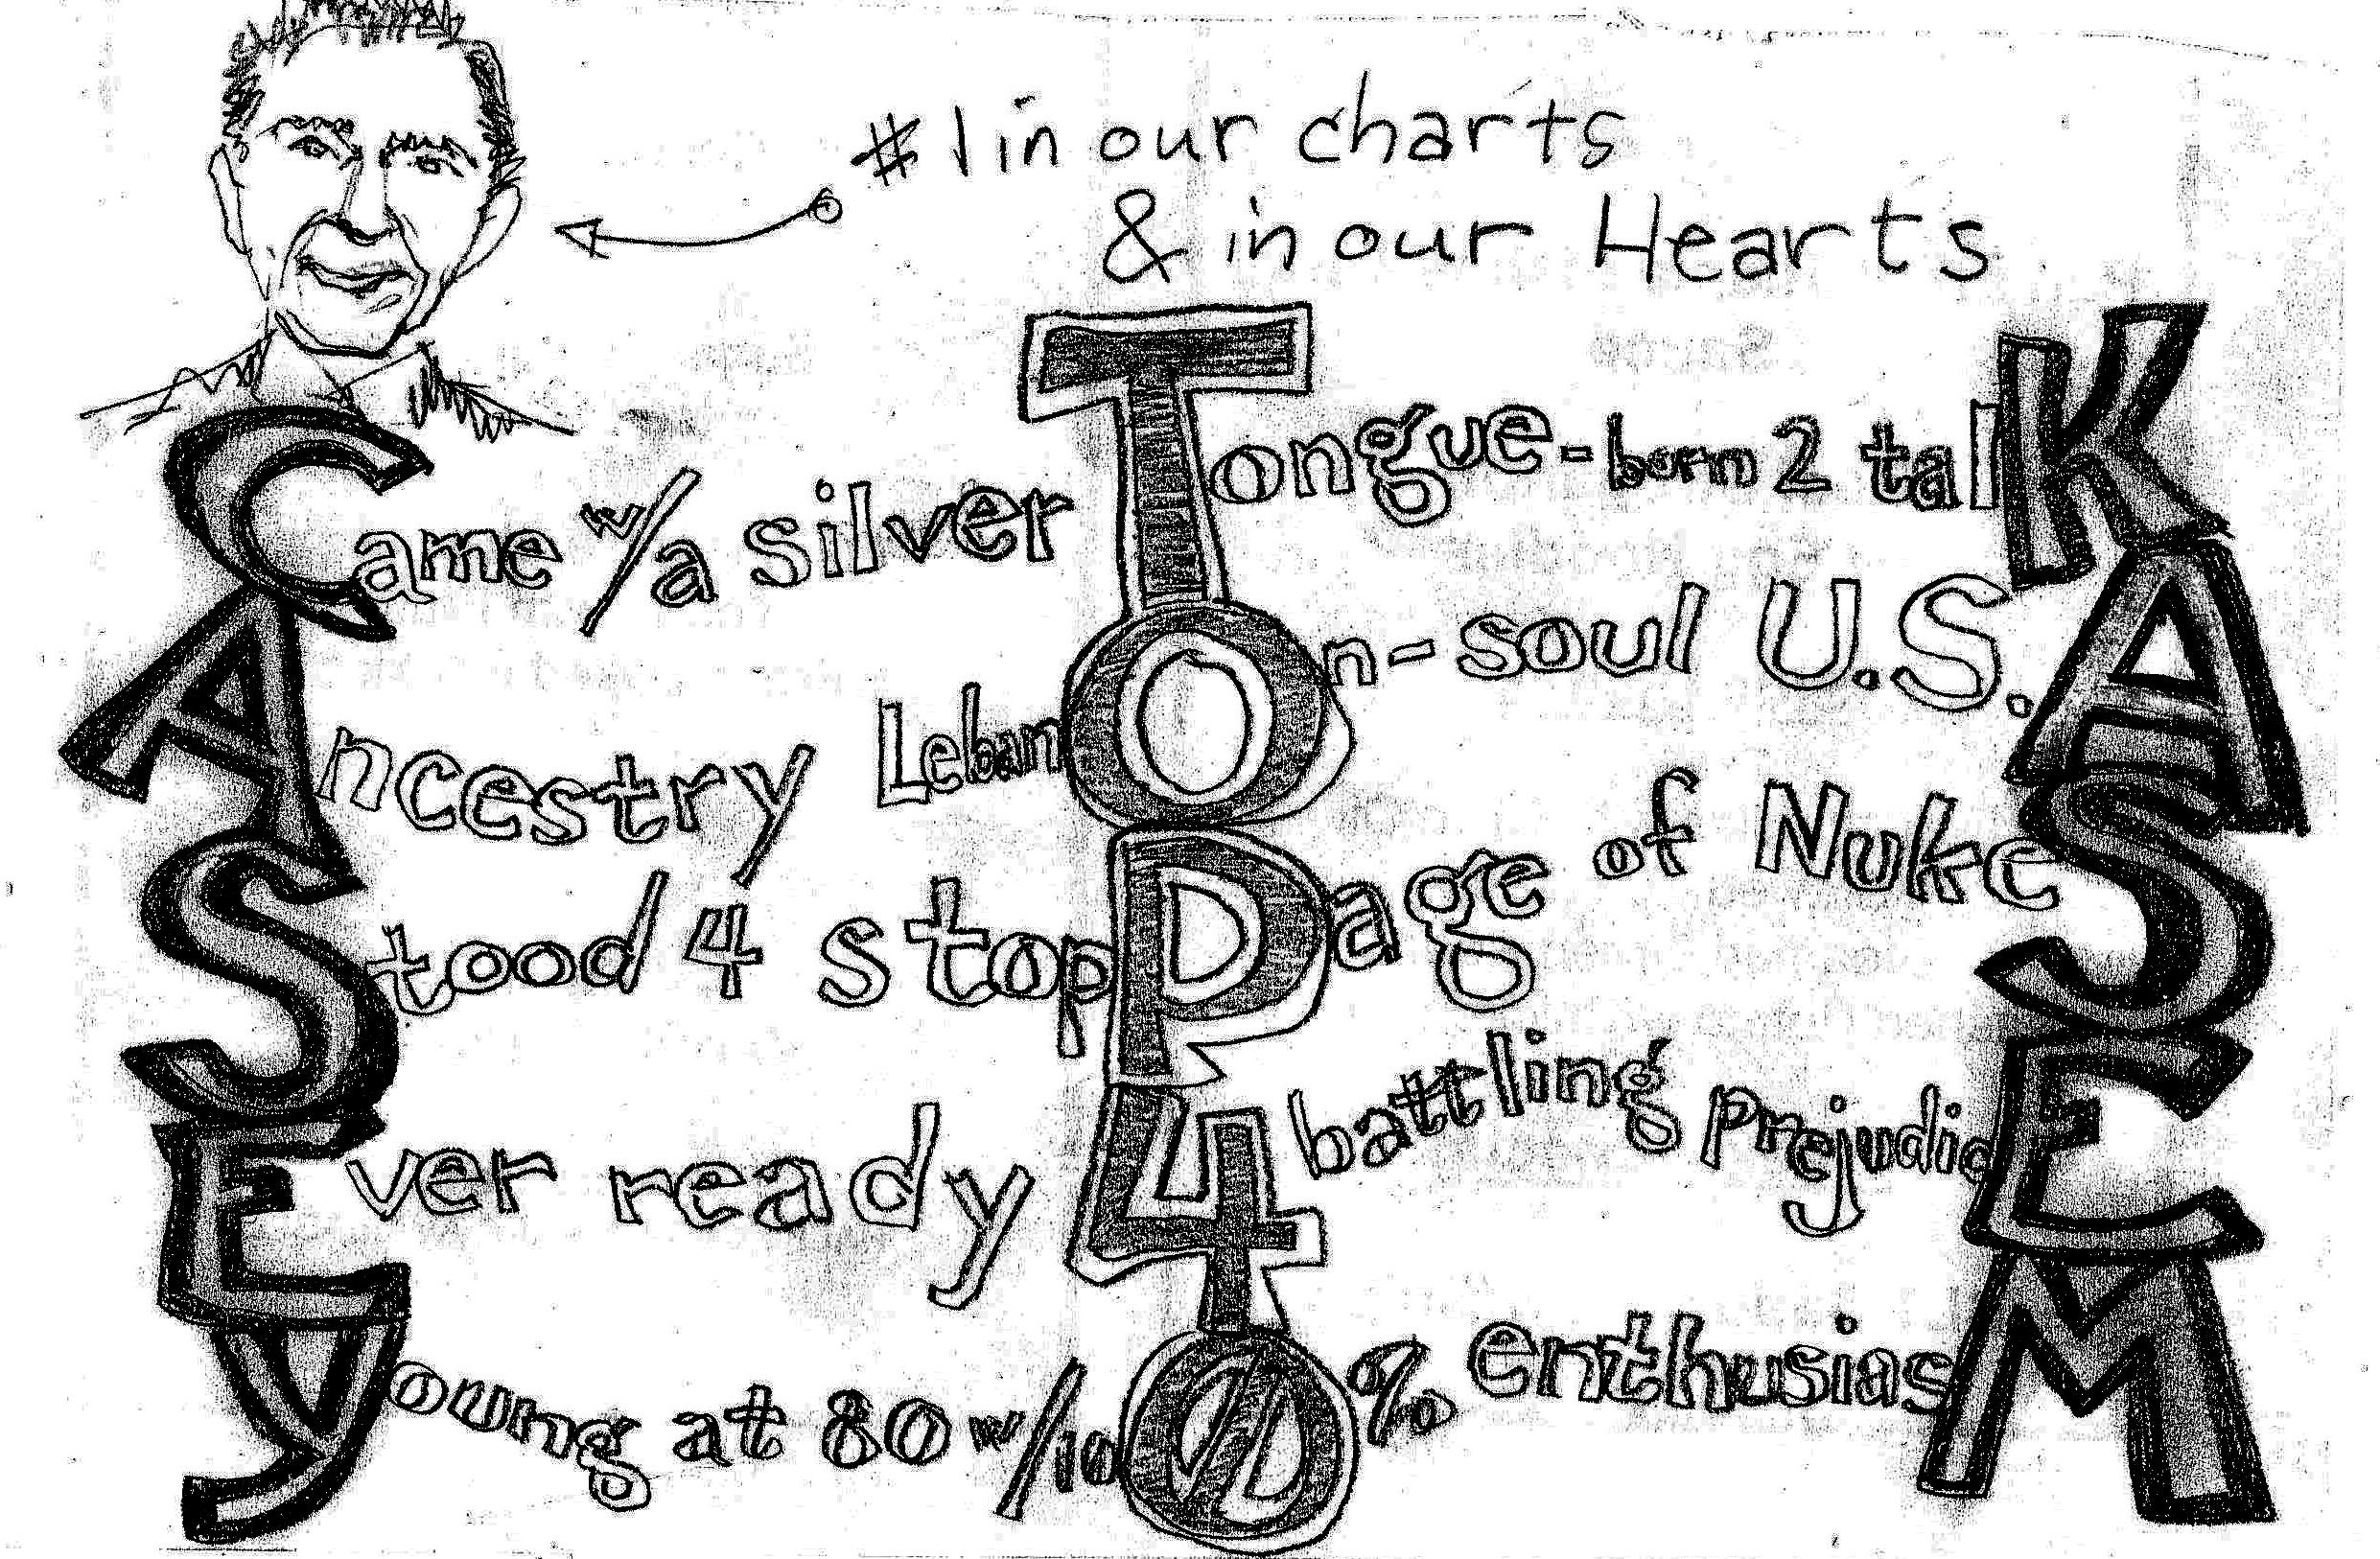 #1 in our charts
& in our Hearts
Came w/a silver Tongue-born 2 talK
Ancestry LebanOn-soul U.S.A
Stood 4 stopPage of NukeS
Ever ready 4 battling PrejudicE
Young at 80 w/100% enthusiasM